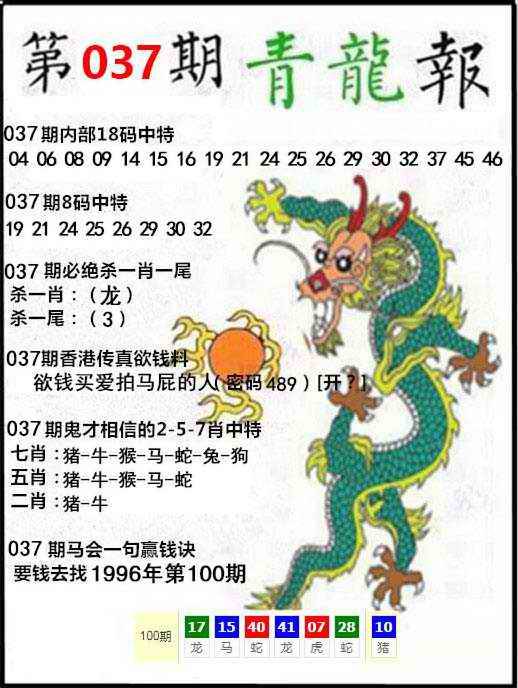 第037期青龍報
037期内部18码中特
04 06 08 09 14 15 16 19 21 24 25 26 29 30 32 37 45 46
037期8码中特
19 21 24 25 26 29 30 32
037 期必绝杀一肖一尾
杀一肖：（龙）
杀一尾：（3）
037期香港传真欲钱料
欲钱买爱拍马屁的人(密码489)[开?]
037期鬼才相信的2-5-7肖中特
七肖：猪-牛-猴-马-蛇-兔-狗
五肖：猪-牛-猴-马-蛇
二肖：猪-牛
037 期马会一句赢钱诀
要钱去找1996年第100期
100期 17 15 40 41 07 28 10
龙 马 蛇 龙 虎 蛇 猪